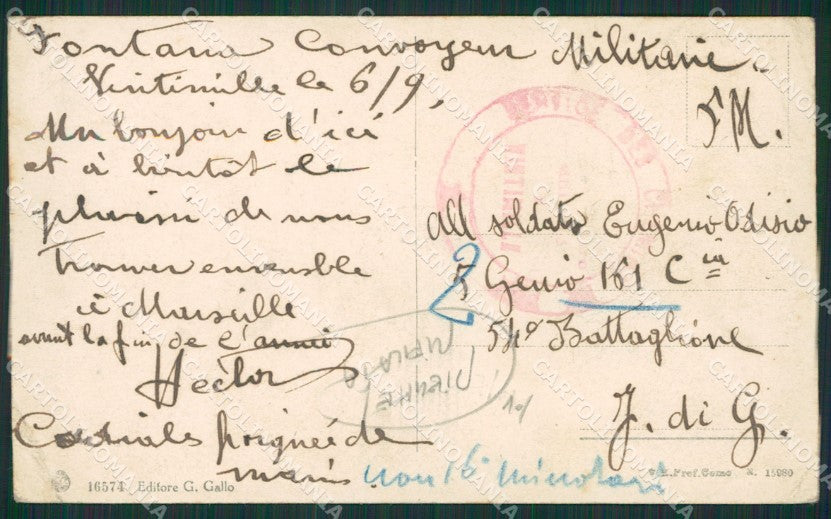 Fontana Convoyeur Militaire.
Vintimille le 6/9.
Un bonjour d'ici
et à bientôt le
plaisir de nous
trouver ensemble
à Marseille
avant la fin de l'année
Hector
Cordiales poignée de
mains
F M.
All soldato Eugenio Odisio
5 Genio 161 C ia
2
54º Battaglione
Z. di G.
non è
16574 Editore G. Gallo
Pref. Como N. 15980
CARTOLINOMANIA